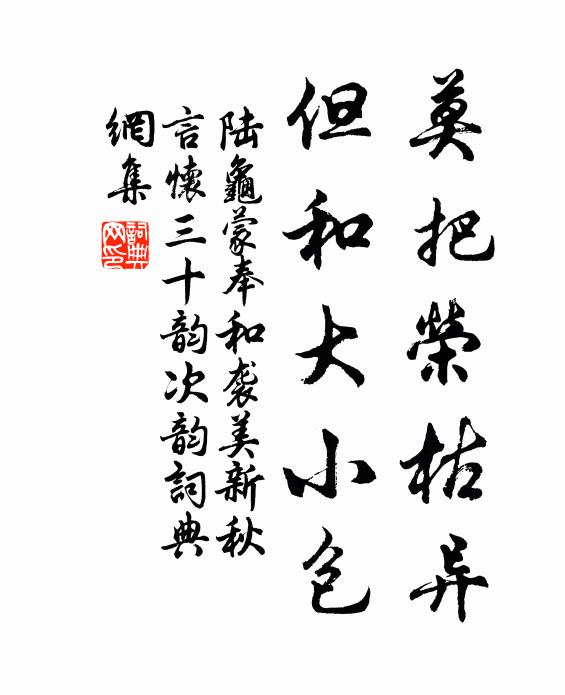 莫把榮枯异
但和大小包
陆龜蒙奉和袭美新秋
言懷三十韵次韵詞典
網集
詞典
网印